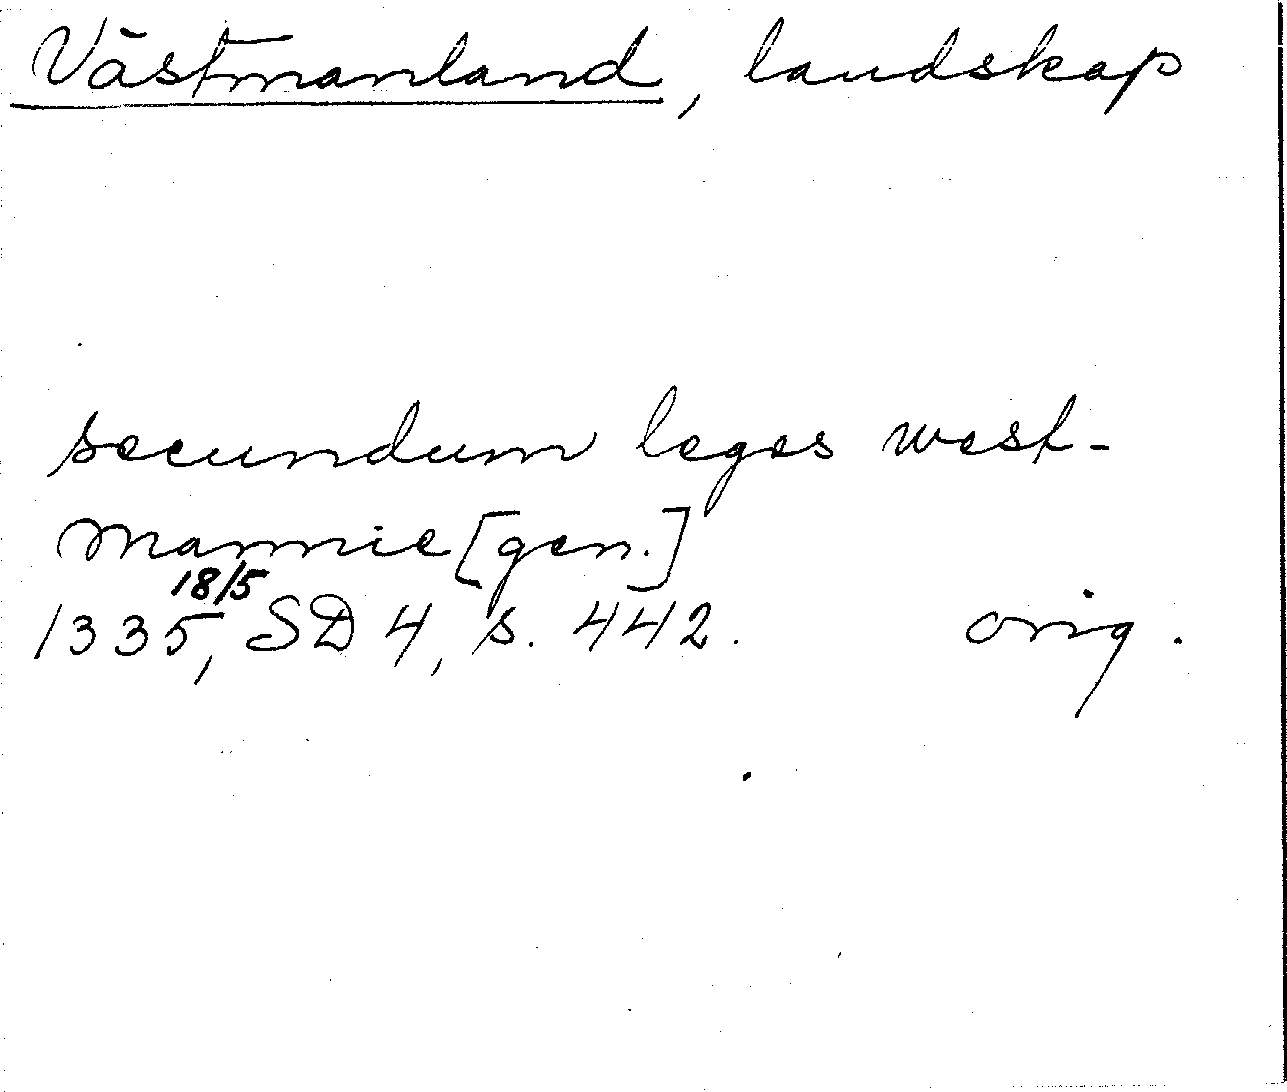 Västmanland, landskap
secundum leges west-
mannie [gen.]
18/5
1335, SD 4, s. 442. orig.